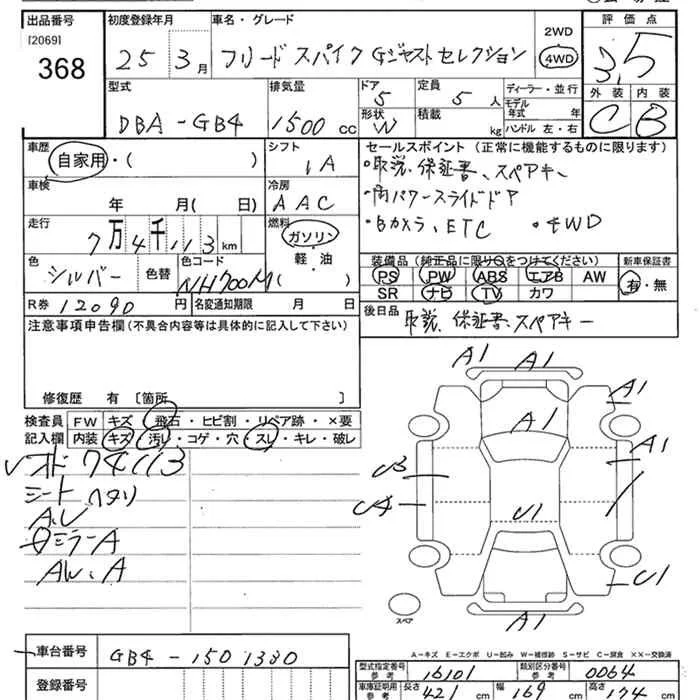 出品番号 初度登録年月 車名・グレード 評価点
[2069]
368
25 3月 フリード スパイク Gジャスト セレクション 2WD 4WD 3.5
型式 排気量 ドア 定員 ディーラー・並行 外装 内装
DBA-GB4 1500 cc 5 5 人 モデル年式 年 C B
形状 W 積載 kg ハンドル 左・右
車歴 シフト セールスポイント (正常に機能するものに限ります)
自家用・( ) IA ・取説、保証書、スペアキー
車検 冷房 ・両パワースライドドア
年 月( 日) AAC ・Bカメラ、ETC ・4WD
走行 燃料
7万4千113km ガソリン 軽・油 ( )
装備品(純正品に限り○をつけてください) 新車保証書
色 色替 色コード PS PW ABS エアB AW 有・無
シルバー NH700M SR ナビ TV カワ
R券 12090 円 名変通知期限 月 日 後日品 取説、保証書、スペアキー
注意事項申告欄(不具合内容等は具体的に記入して下さい)
修復歴 有 [箇所 ]
検査員 FW キズ 飛石・ヒビ割・リペア跡・×要
記入欄 内装 キズ 汚レ・コゲ・穴・スレ・キレ・破レ
74113
シート ヘタリ
A.U
ミラーA
AW、A
A1 A1
A1 A1
A1
U3
U4 U1
U1
A1
スペア
A-キズ E-エクボ U-凹み W-補修跡 S-サビ C-腐食 ××-交換済
車台番号 GB4-1501330
型式指定番号 参考 16101 類別区分番号 参考 0064
登録番号 車庫証明用 参考 長さ 421 cm 幅 169 cm 高さ 174 cm